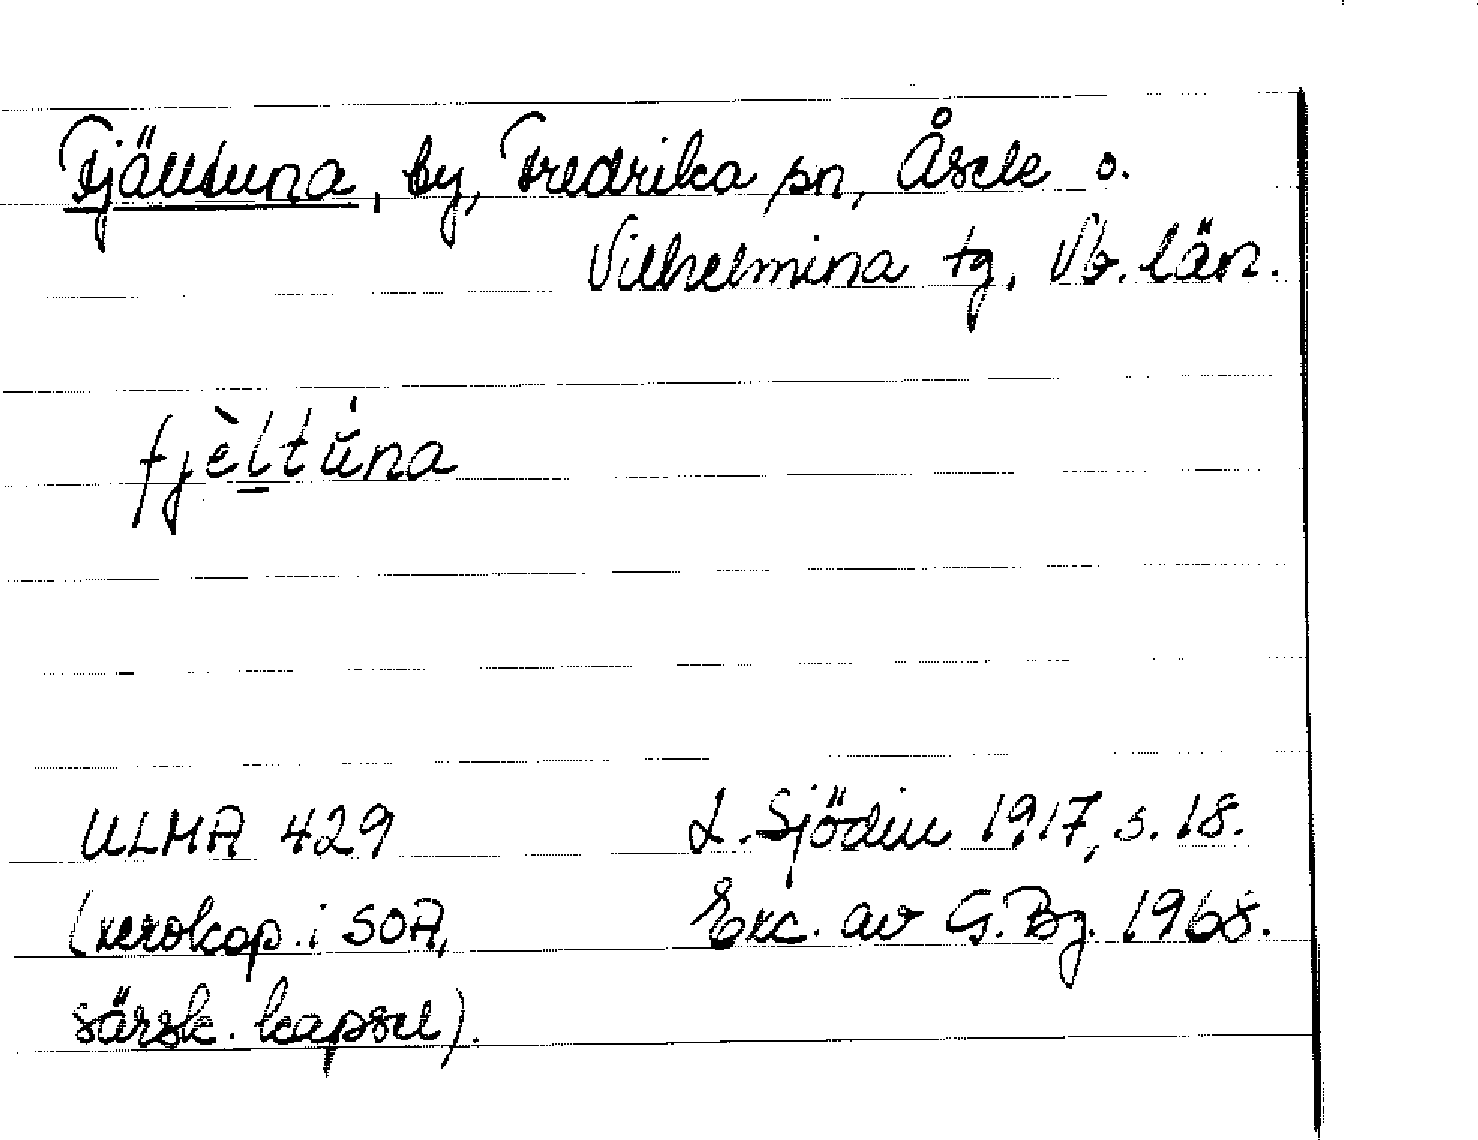 Fjälltuna, by, Fredrika sn, Åsele o.
Vilhelmina tg, Vb. län.
fjèltúna
ULMA 429
(xerokop. i SOA,
särsk. kapsel).
L. Sjödin 1917, s. 18.
Exc. av G. Bg. 1968.